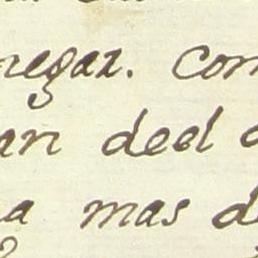 negar. Con
an deel
a mas de